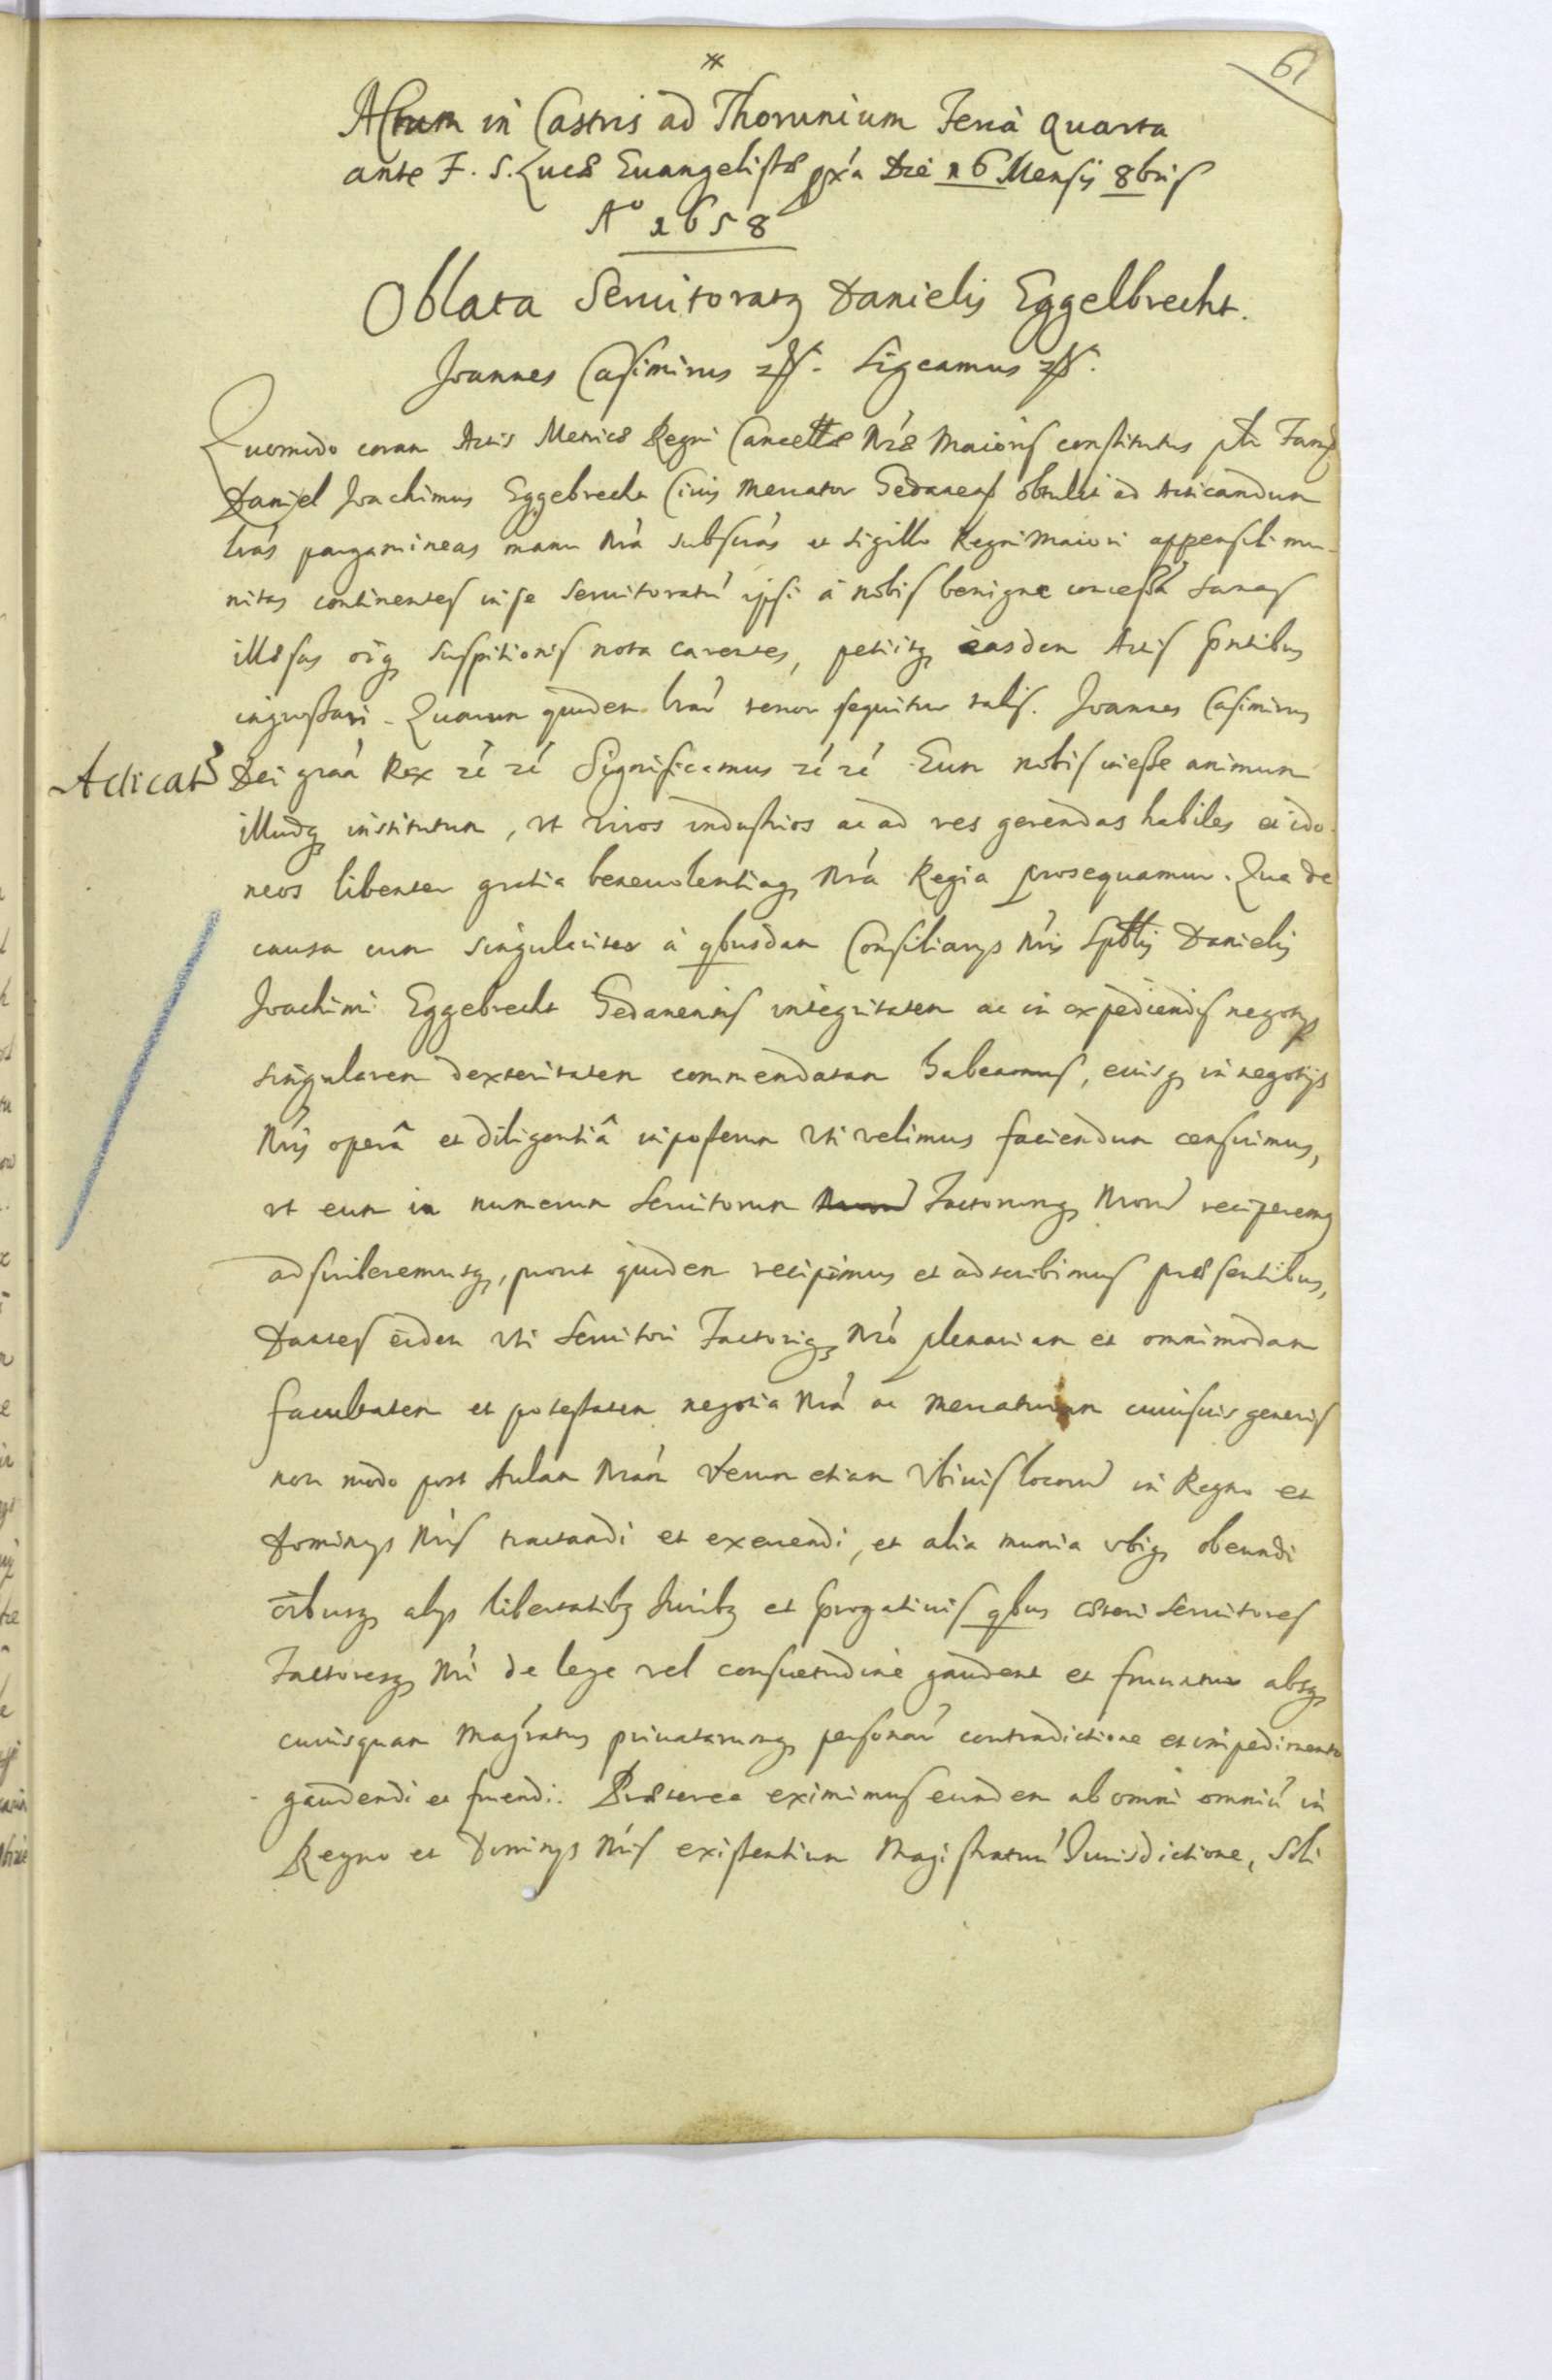 61
Actum in Castris ad Thorunium Feria quarta
ante F. S. Lucæ Euangelistæ pxa Die 16 Mensis 8bris
Aº 1658
Oblata Seruitoratq Danielis Eggelbrecht.
Joannes Casimirus Sigcamus
Quomodo coram Actis Metricæ Regni Cancellæ Nræ Maioris constitutus ptr Fams
Daniel Joachimus Eggebrecht Ciuis Mercator Gedanens obtulit ad Acticandum
lras pargamineas manu Nra subscras et sigillo Regni Maiori appensili mu-
nitas continentes in se seruitoratu ipsi à nobis benigne concessu sanas
illæsas oiq suspitionis nota carentes, petiitq easdem Actis pntibus
ingrossari. Quarum quidem lrar tenor sequitur talis. Joannes Casimirus
Acticat Dei graa Rex ré ré Significamus ré ré Eum nobis inesse animum
illudq institutum, vt viros industrios ac ad res gerendas habiles et ido-
neos libenter gratia beneuolentiaq Nra Regia prosequamur. Qua de
causa cum singulariter à qbusdam Consiliarys Nris Spblis Danielis
Joachimi Eggebrecht Gedanensis integritatem ac in expediendis negotys
singularem dexteritatem commendatam habeamus, eiusq in negotijs
Nris operâ et diligentiâ inposterum vti velimus faciendum censuimus,
vt eum in numerum seruitorum Factorumq Nrorum reciperemq
adscriberemusq, prout quidem recipimus et adscribimus præsentibus,
Dantes eidem vti Seruitori Factoriq Nro plenariam et omnimodam
facultatem et potestatem negotia Nra ac mercaturam cuiusuis generis
non modo post Aulam Nram verum etiam vbiuis locorum in Regno et
Dominys Nris tractandi et exercendi, et alia munia vbiq obeundi
oibusq alys libertatibq Juribq et progatiuis qbus cæteri seruitores
Factoresq Nri de lege vel consuetudine gaudent et fruuntur absq
cuiusquam Magratus priuatarumq personar contradictione et impedimento
gaudendi et fruendi. Præterea eximimus eundem ab omni omniu in
Regno et Dominys Nris existentium Magistratuu Jurisdictione, Soli